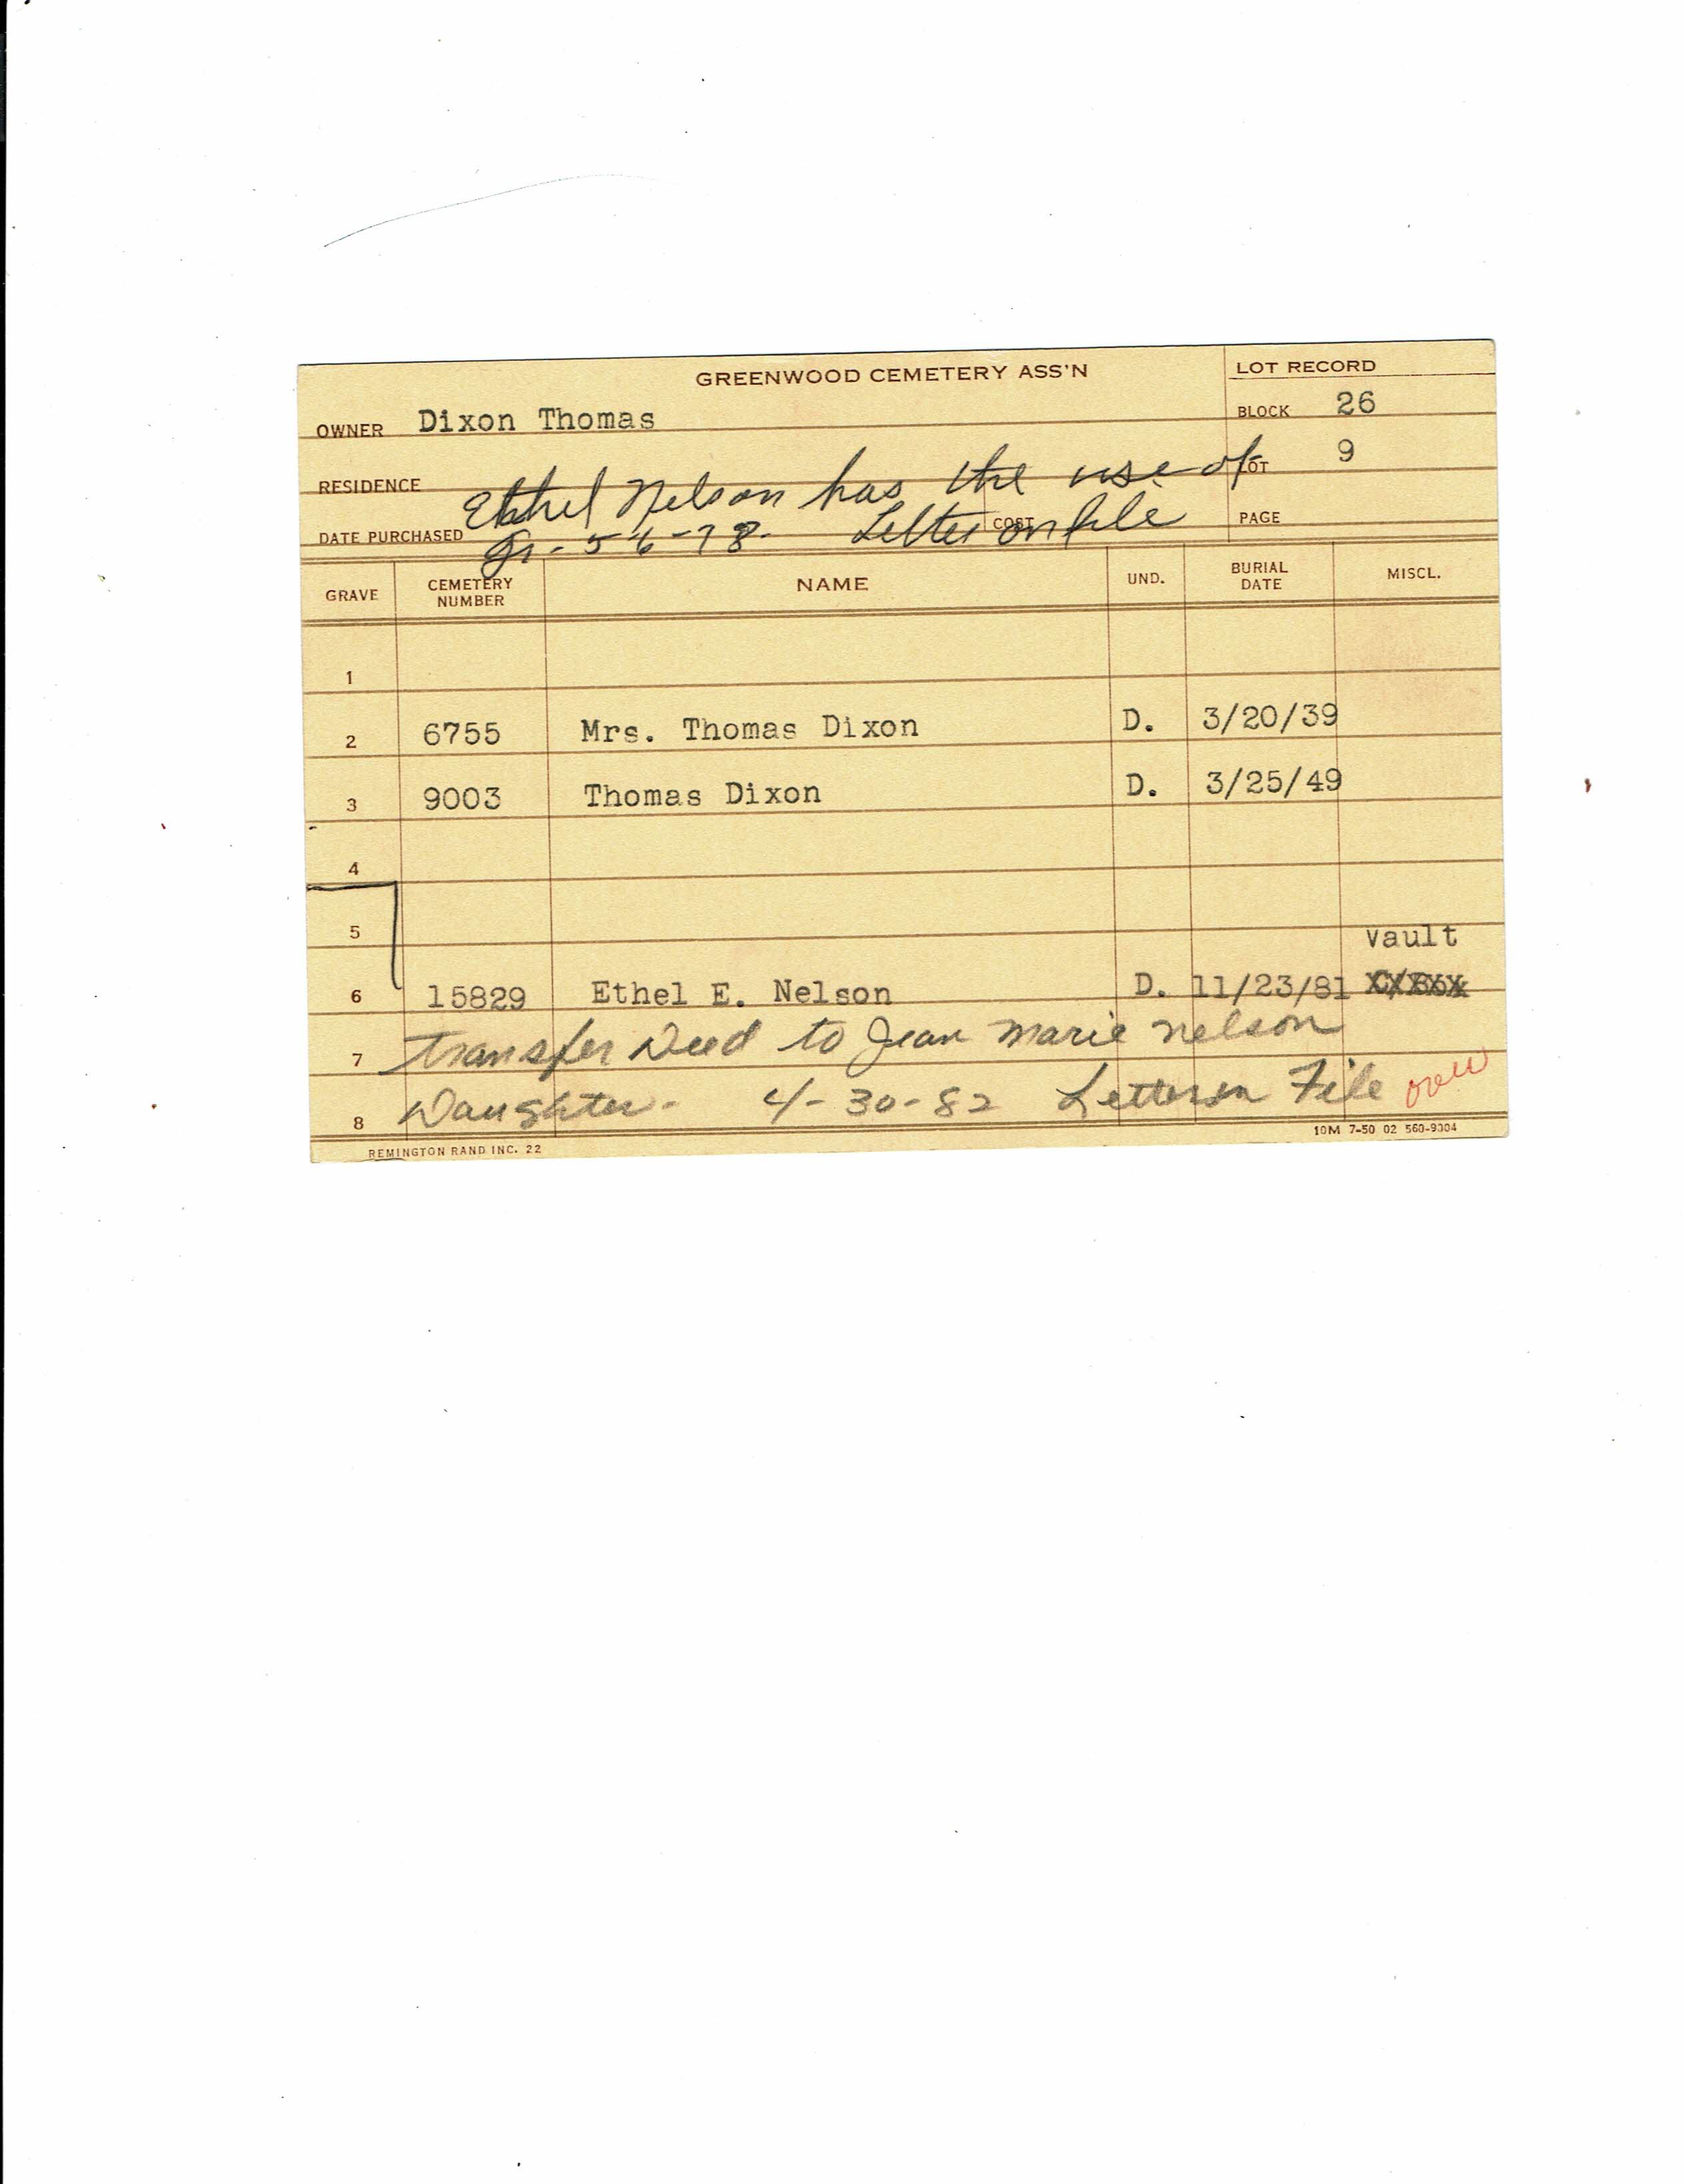 GREENWOOD CEMETERY ASS'N
LOT RECORD
OWNER Dixon Thomas
BLOCK 26
RESIDENCE
LOT 9
Ethel Nelson has the use of
DATE PURCHASED
COST
PAGE
Gr- 5-6-78. Letter on file
GRAVE CEMETERY NUMBER NAME UND. BURIAL DATE MISCL.
1
2 6755 Mrs. Thomas Dixon D. 3/20/39
3 9003 Thomas Dixon D. 3/25/49
4
5
vault
6 15829 Ethel E. Nelson D. 11/23/81
7 Transfer Deed to Jean Marie Nelson
8 Daughter- 4-30-82 Letter in File over
REMINGTON RAND INC. 22
10M 7-50 02 560-9004